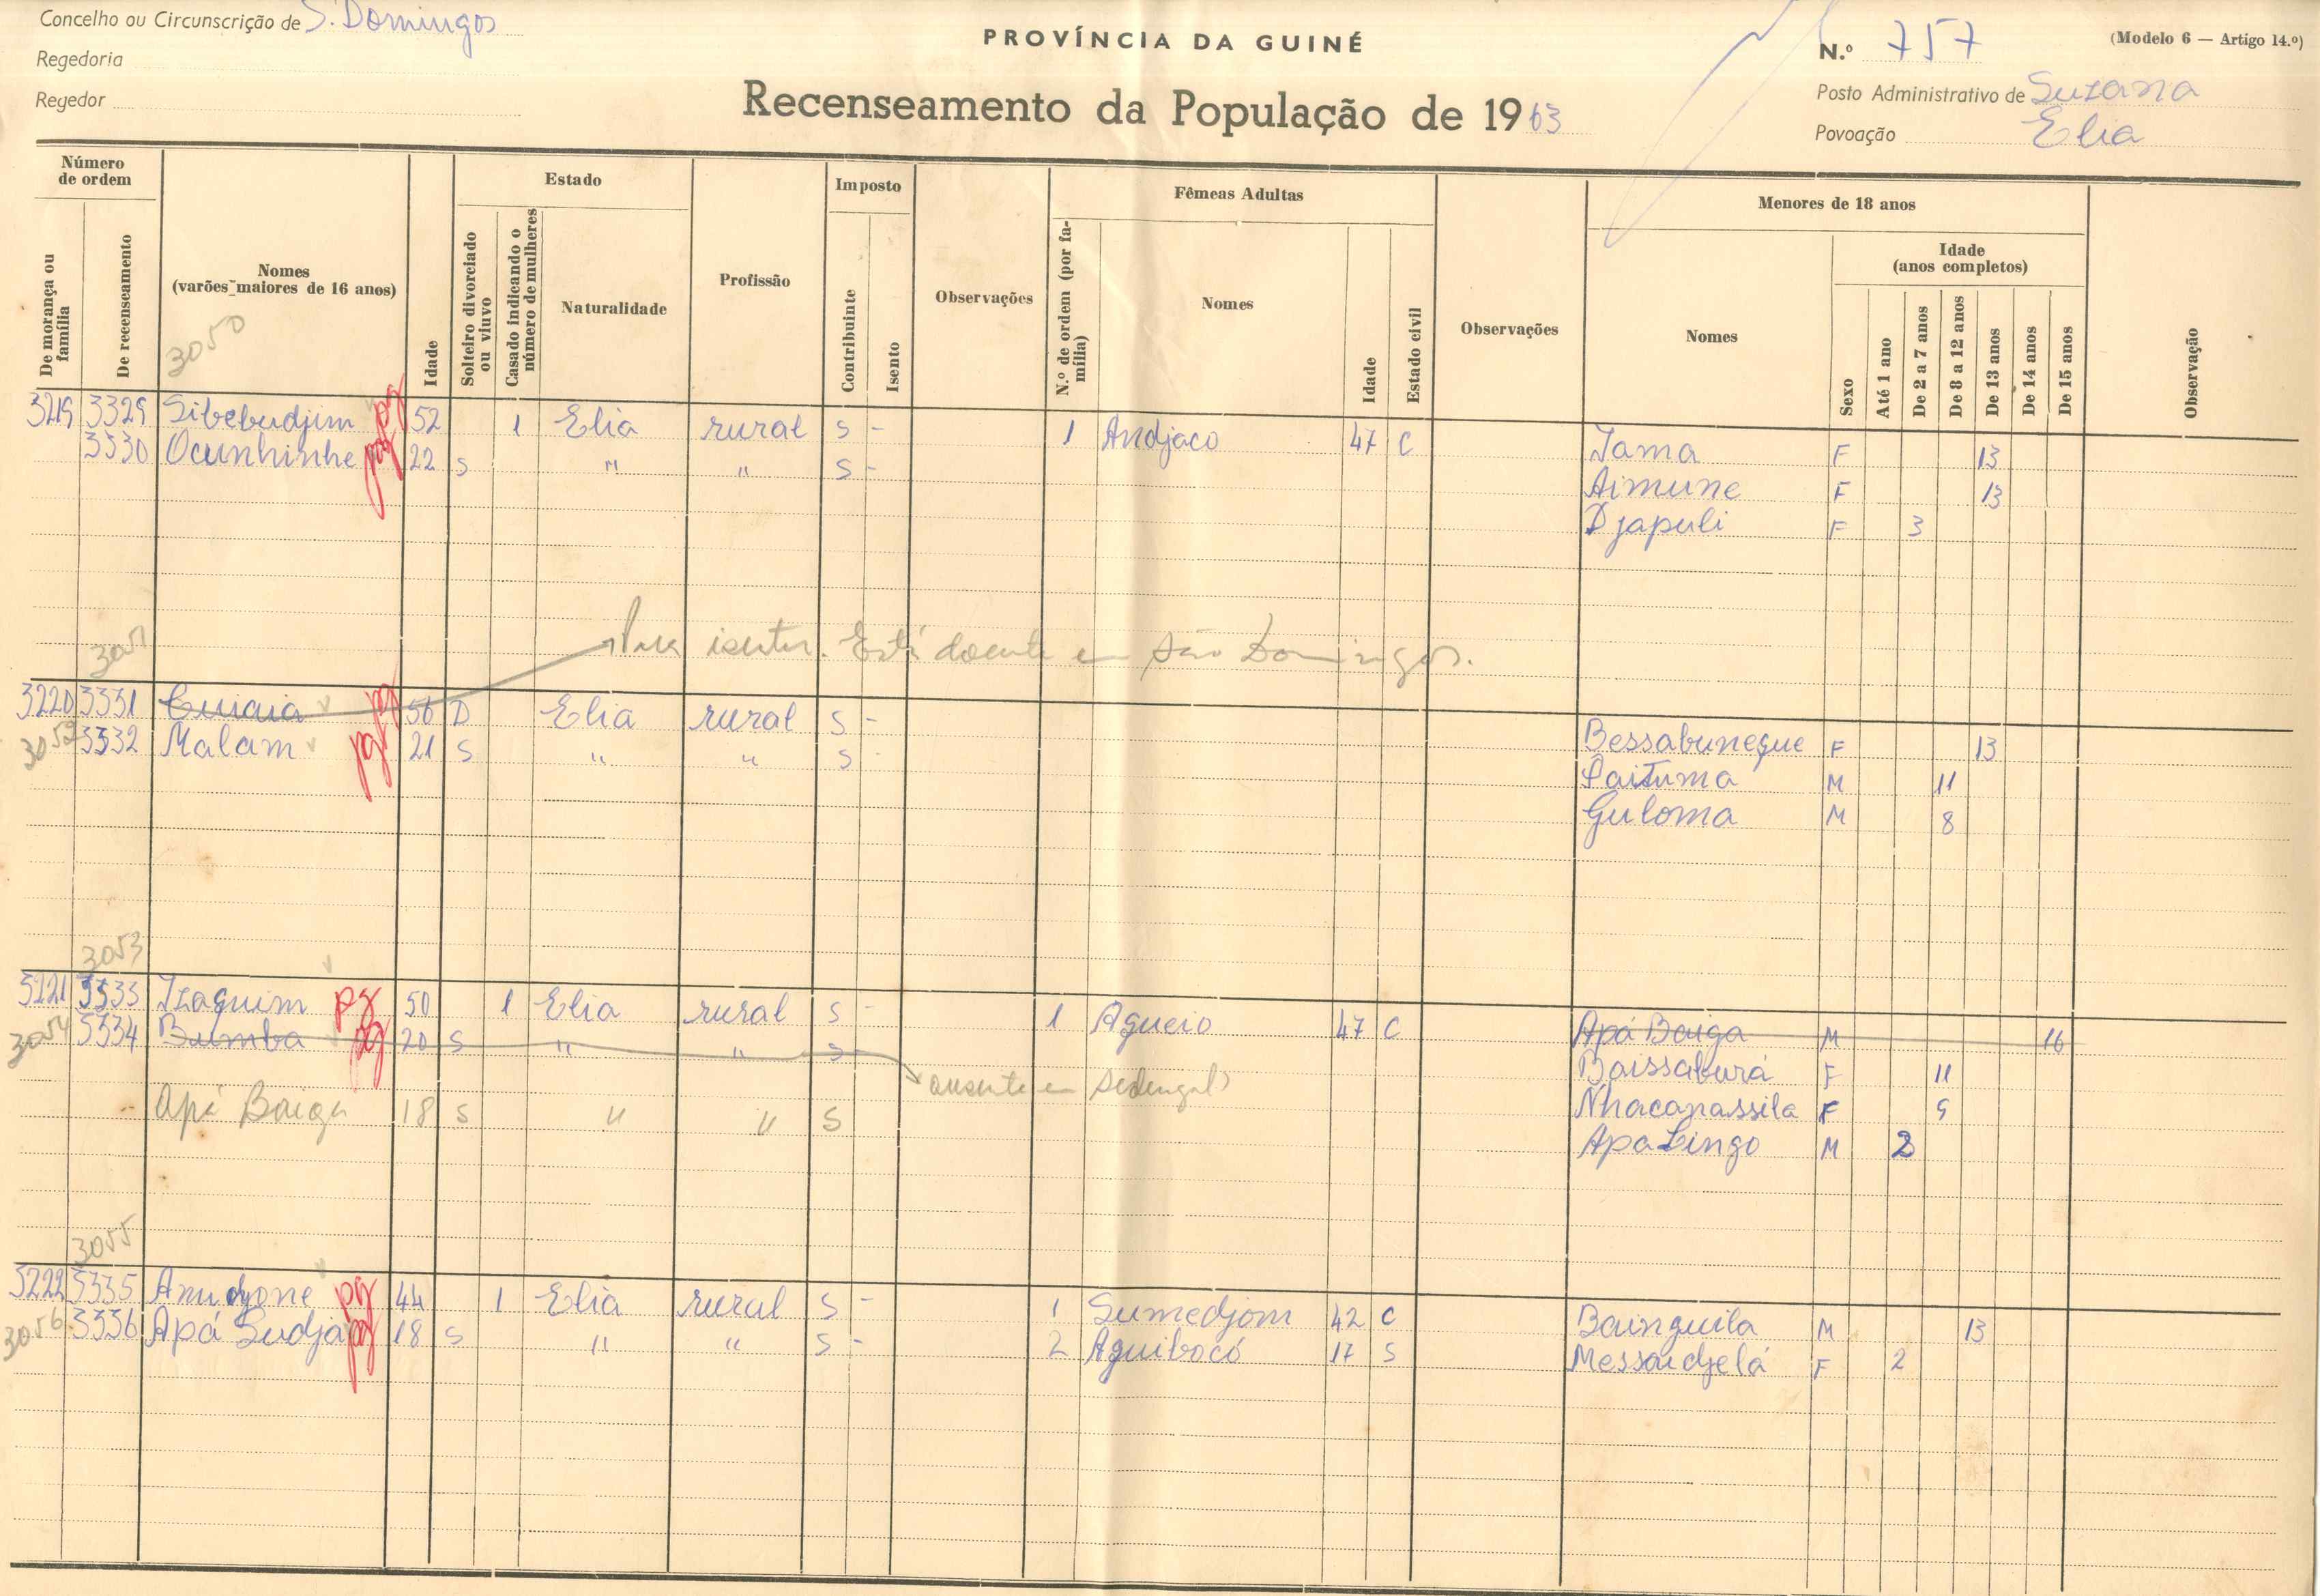 Concelho ou Circunscrição de S. Domingos
Regedoria
Regedor
PROVÍNCIA DA GUINÉ
Recenseamento da População de 1963
N.º 757
(Modelo 6 — Artigo 14.º)
Posto Administrativo de Suzana
Povoação Elia
Número de ordem
De morança ou família
De recenseamento
Nomes (varões maiores de 16 anos)
Idade
Estado
Solteiro divorciado ou viuvo
Casado indicando o número de mulheres
Naturalidade
Profissão
Imposto
Contribuinte
Isento
Observações
Fêmeas Adultas
N.º de ordem (por família)
Nomes
Idade
Estado civil
Observações
Menores de 18 anos
Nomes
Sexo
Idade (anos completos)
Até 1 ano
De 2 a 7 anos
De 8 a 12 anos
De 13 anos
De 14 anos
De 15 anos
Observação
3050
3219 3329 Sibebudjim pg 52 1 Elia rural S - 1 Andjaco 47 C Jama F 13
3330 Ocunhinhe pg 22 S " " S - Aimune F 13
Djapuli F 3
Para isentar. Está doente em São Domingos.
3051
3220 3331 Cuiaia pg 56 D Elia rural S - Bessabuneque F 13
3052 3332 Malam pg 21 S " " S - Paituma M 11
Guloma M 8
3053
3221 3333 Izaquim pg 50 1 Elia rural S - 1 Agueio 47 C Apá Baiga M 16
3054 3334 Bumba pg 20 S " " S Baissaburá F 11
ausente em
Apá Baiga 18 S " " S Nhacanassila F 9
Apa Lingo M 2
3055
3222 3335 Amudjone pg 44 1 Elia rural S - 1 Sumedjom 42 C Bainguila M 13
3056 3336 Apá Sudja pg 18 S " " S - 2 Aguibocó 17 S Messaudjelá F 2